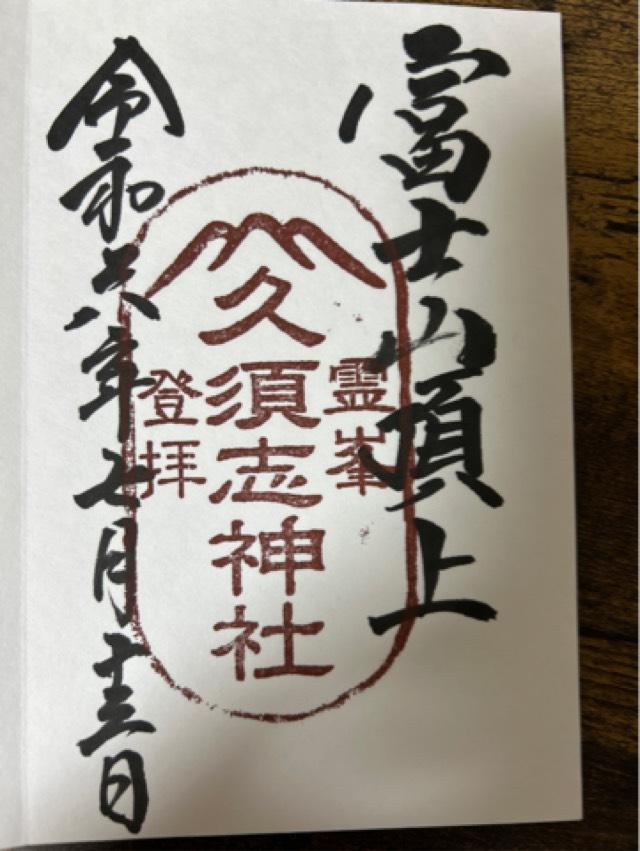 富士山頂上
霊峯
久須志神社
登拝
令和六年七月十三日